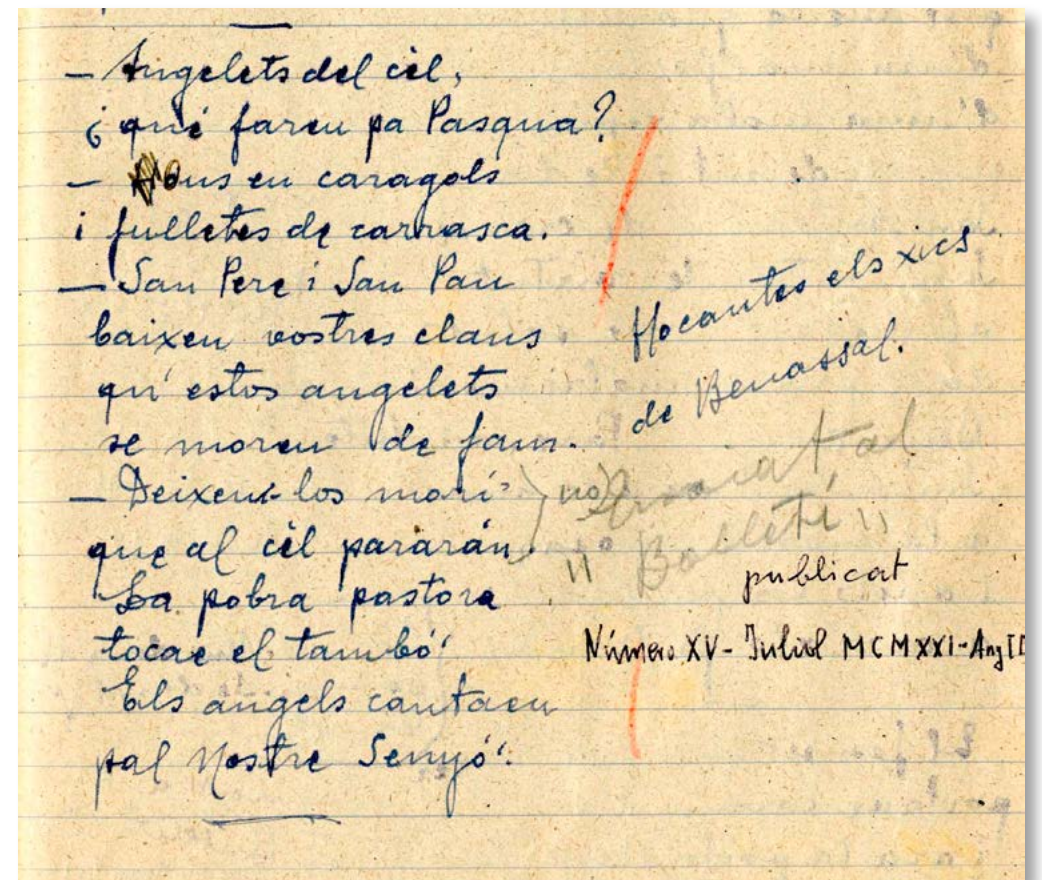 — Angelets del cèl,
¿què fareu pa Pasqua?
— Nous en caragols
i fulletes de carrasca.
— San Pere i San Pau
baixeu vostres claus
qu'estos angelets
se moren de fam.
— Deixeu-los morí
que al cèl pararán.
La pobra pastora
tocae el tambó
Els angels cantaen
pal Nostre Senyó.
Ho canten els xics
de Benassal.
no
Enviat al
"Bolletí"
publicat
Número XV - Juliol MCMXXI - Any II